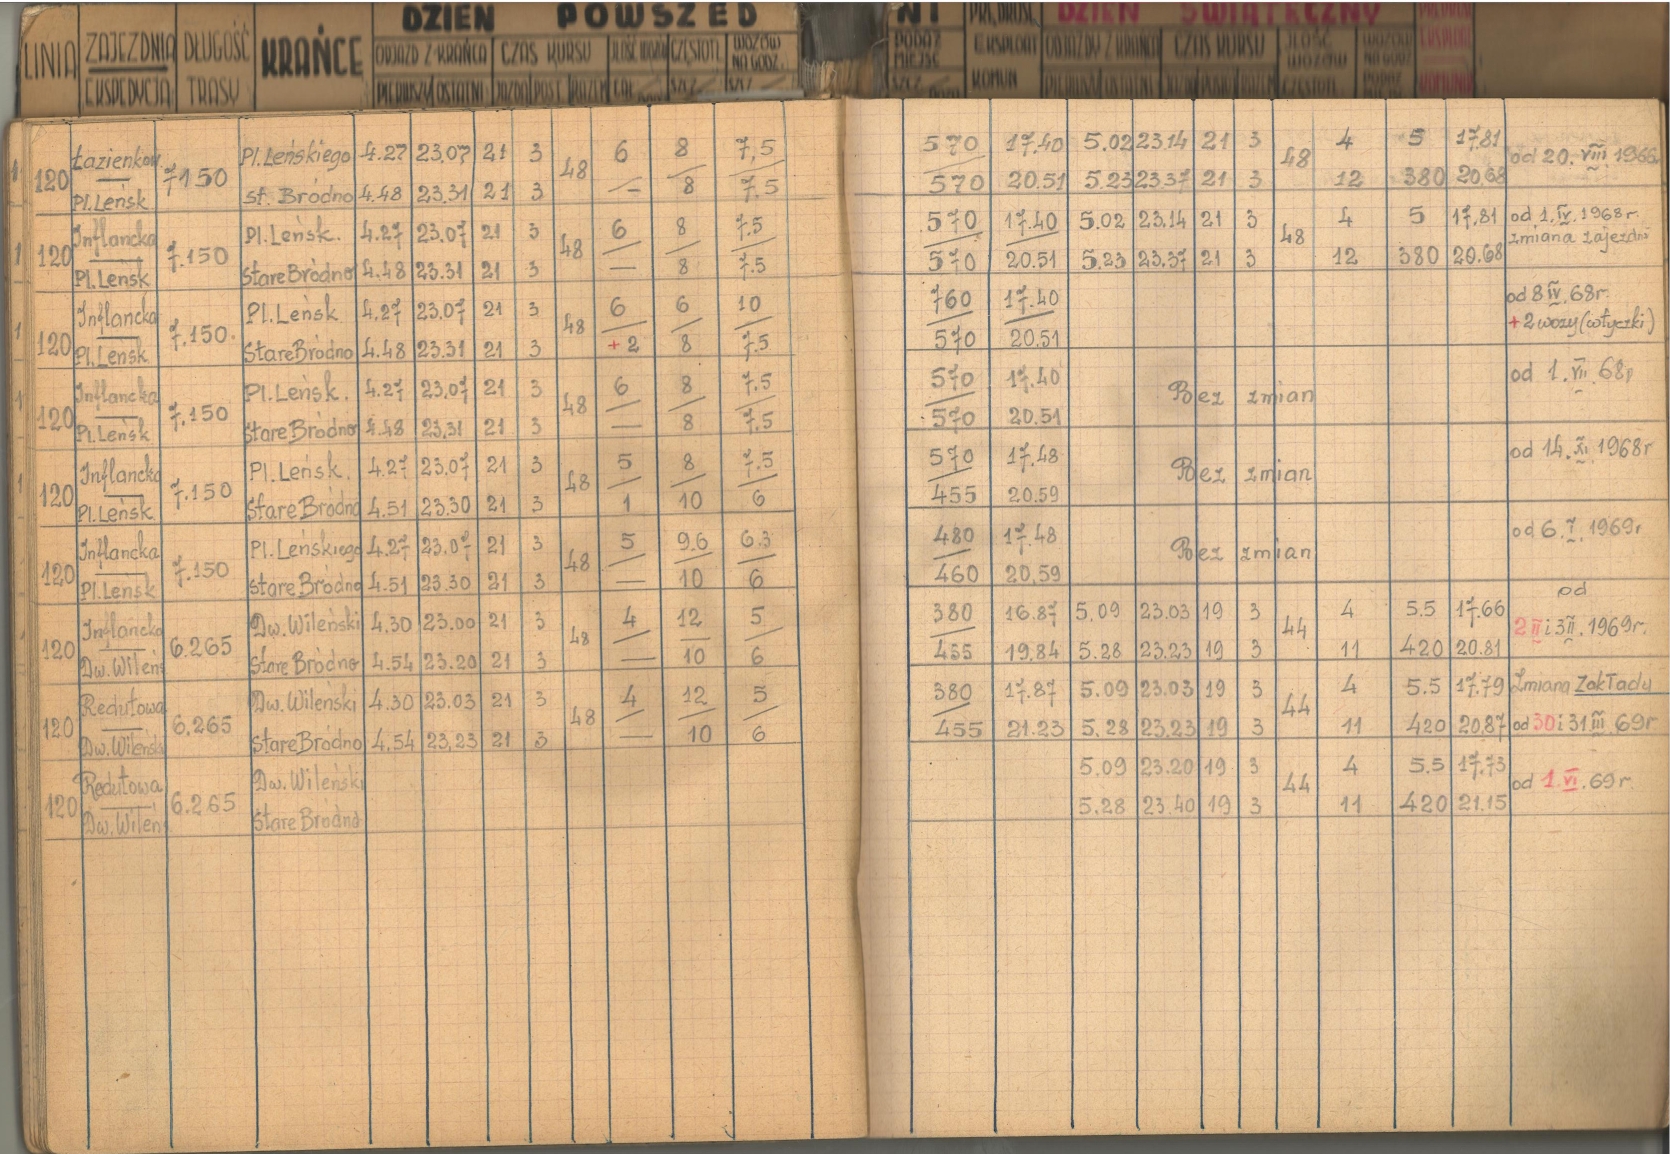 DZIEŃ POWSZEDNI DZIEŃ ŚWIĄTECZNY
LINIA ZAJEZDNIA DŁUGOŚĆ KRAŃCE ODJAZD Z KRAŃCA CZAS KURSU WOZÓW PODAŻ EKSPLOAT ODJAZDY Z KRAŃCA CZAS KURSU ILOŚĆ
NA GODZ. MIEJSC WOZÓW
EKSPEDYCJA TRASY PIERWSZY OSTATNI JAZDA POST. RAZEM SZCZ KOMUN CZĘSTOTL
Łazienkow Pl. Leńskiego 4.27 23.07 21 3 6 8 7,5 570 17.40 5.02 23.14 21 3 4 5 17.81
1 120 7.150 48 48 od 20. VIII 1966
Pl. Leńsk st. Bródno 4.48 23.31 21 3 — 8 7.5 570 20.51 5.23 23.37 21 3 12 380 20.68
Inflancka Pl. Leńsk. 4.27 23.07 21 3 6 8 7.5 570 17.40 5.02 23.14 21 3 4 5 17,81 od 1. IV. 1968r.
1 120 7.150 48 48 zmiana zajezdni
Pl. Leńsk Stare Bródno 4.48 23.31 21 3 — 8 7.5 570 20.51 5.23 23.37 21 3 12 380 20.68
Inflancka Pl. Leńsk 4.27 23.07 21 3 6 6 10 760 17.40 od 8 IV. 68r.
1 120 7.150. 48 +2 wozy (wtyczki)
Pl. Leńsk Stare Bródno 4.48 23.31 21 3 +2 8 7.5 570 20.51
Inflancka Pl. Leńsk. 4.27 23.07 21 3 6 8 7.5 570 17.40 od 1. VII. 68r
1 120 7.150 48 Bez zmian
Pl. Leńsk Stare Bródno 4.48 23.31 21 3 — 8 7.5 570 20.51
Inflancka Pl. Leńsk. 4.27 23.07 21 3 5 8 7.5 570 17.48 od 14. XI. 1968r
1 120 7.150 48 Bez zmian
Pl. Leńsk. Stare Bródno 4.51 23.30 21 3 1 10 6 455 20.59
Inflancka Pl. Leńskiego 4.27 23.07 21 3 5 9.6 6.3 480 17.48 od 6. I. 1969r
120 7.150 48 Bez zmian
Pl. Leńsk Stare Bródno 4.51 23.30 21 3 — 10 6 460 20,59
Inflancka Dw. Wileński 4.30 23.00 21 3 4 12 5 380 16.87 5.09 23.03 19 3 4 5.5 17.66 od
120 6.265 48 44 2 II i 3 II. 1969r.
Dw. Wileń Stare Bródno 4.54 23.20 21 3 — 10 6 455 19.84 5.28 23.23 19 3 11 420 20.81
Redutowa Dw. Wileński 4.30 23.03 21 3 4 12 5 380 17.87 5.09 23.03 19 3 4 5.5 17.79 Zmiana Zakładu
120 6.265 48 44
Dw. Wileńsk Stare Bródno 4.54 23,23 21 3 — 10 6 455 21.23 5.28 23.23 19 3 11 420 20.87 od 30 i 31 III. 69r
Redutowa Dw. Wileński 5.09 23.20 19 3 4 5.5 17.73
120 6.265 44 od 1. VI. 69r.
Dw. Wileń Stare Bródno 5.28 23.40 19 3 11 420 21.15